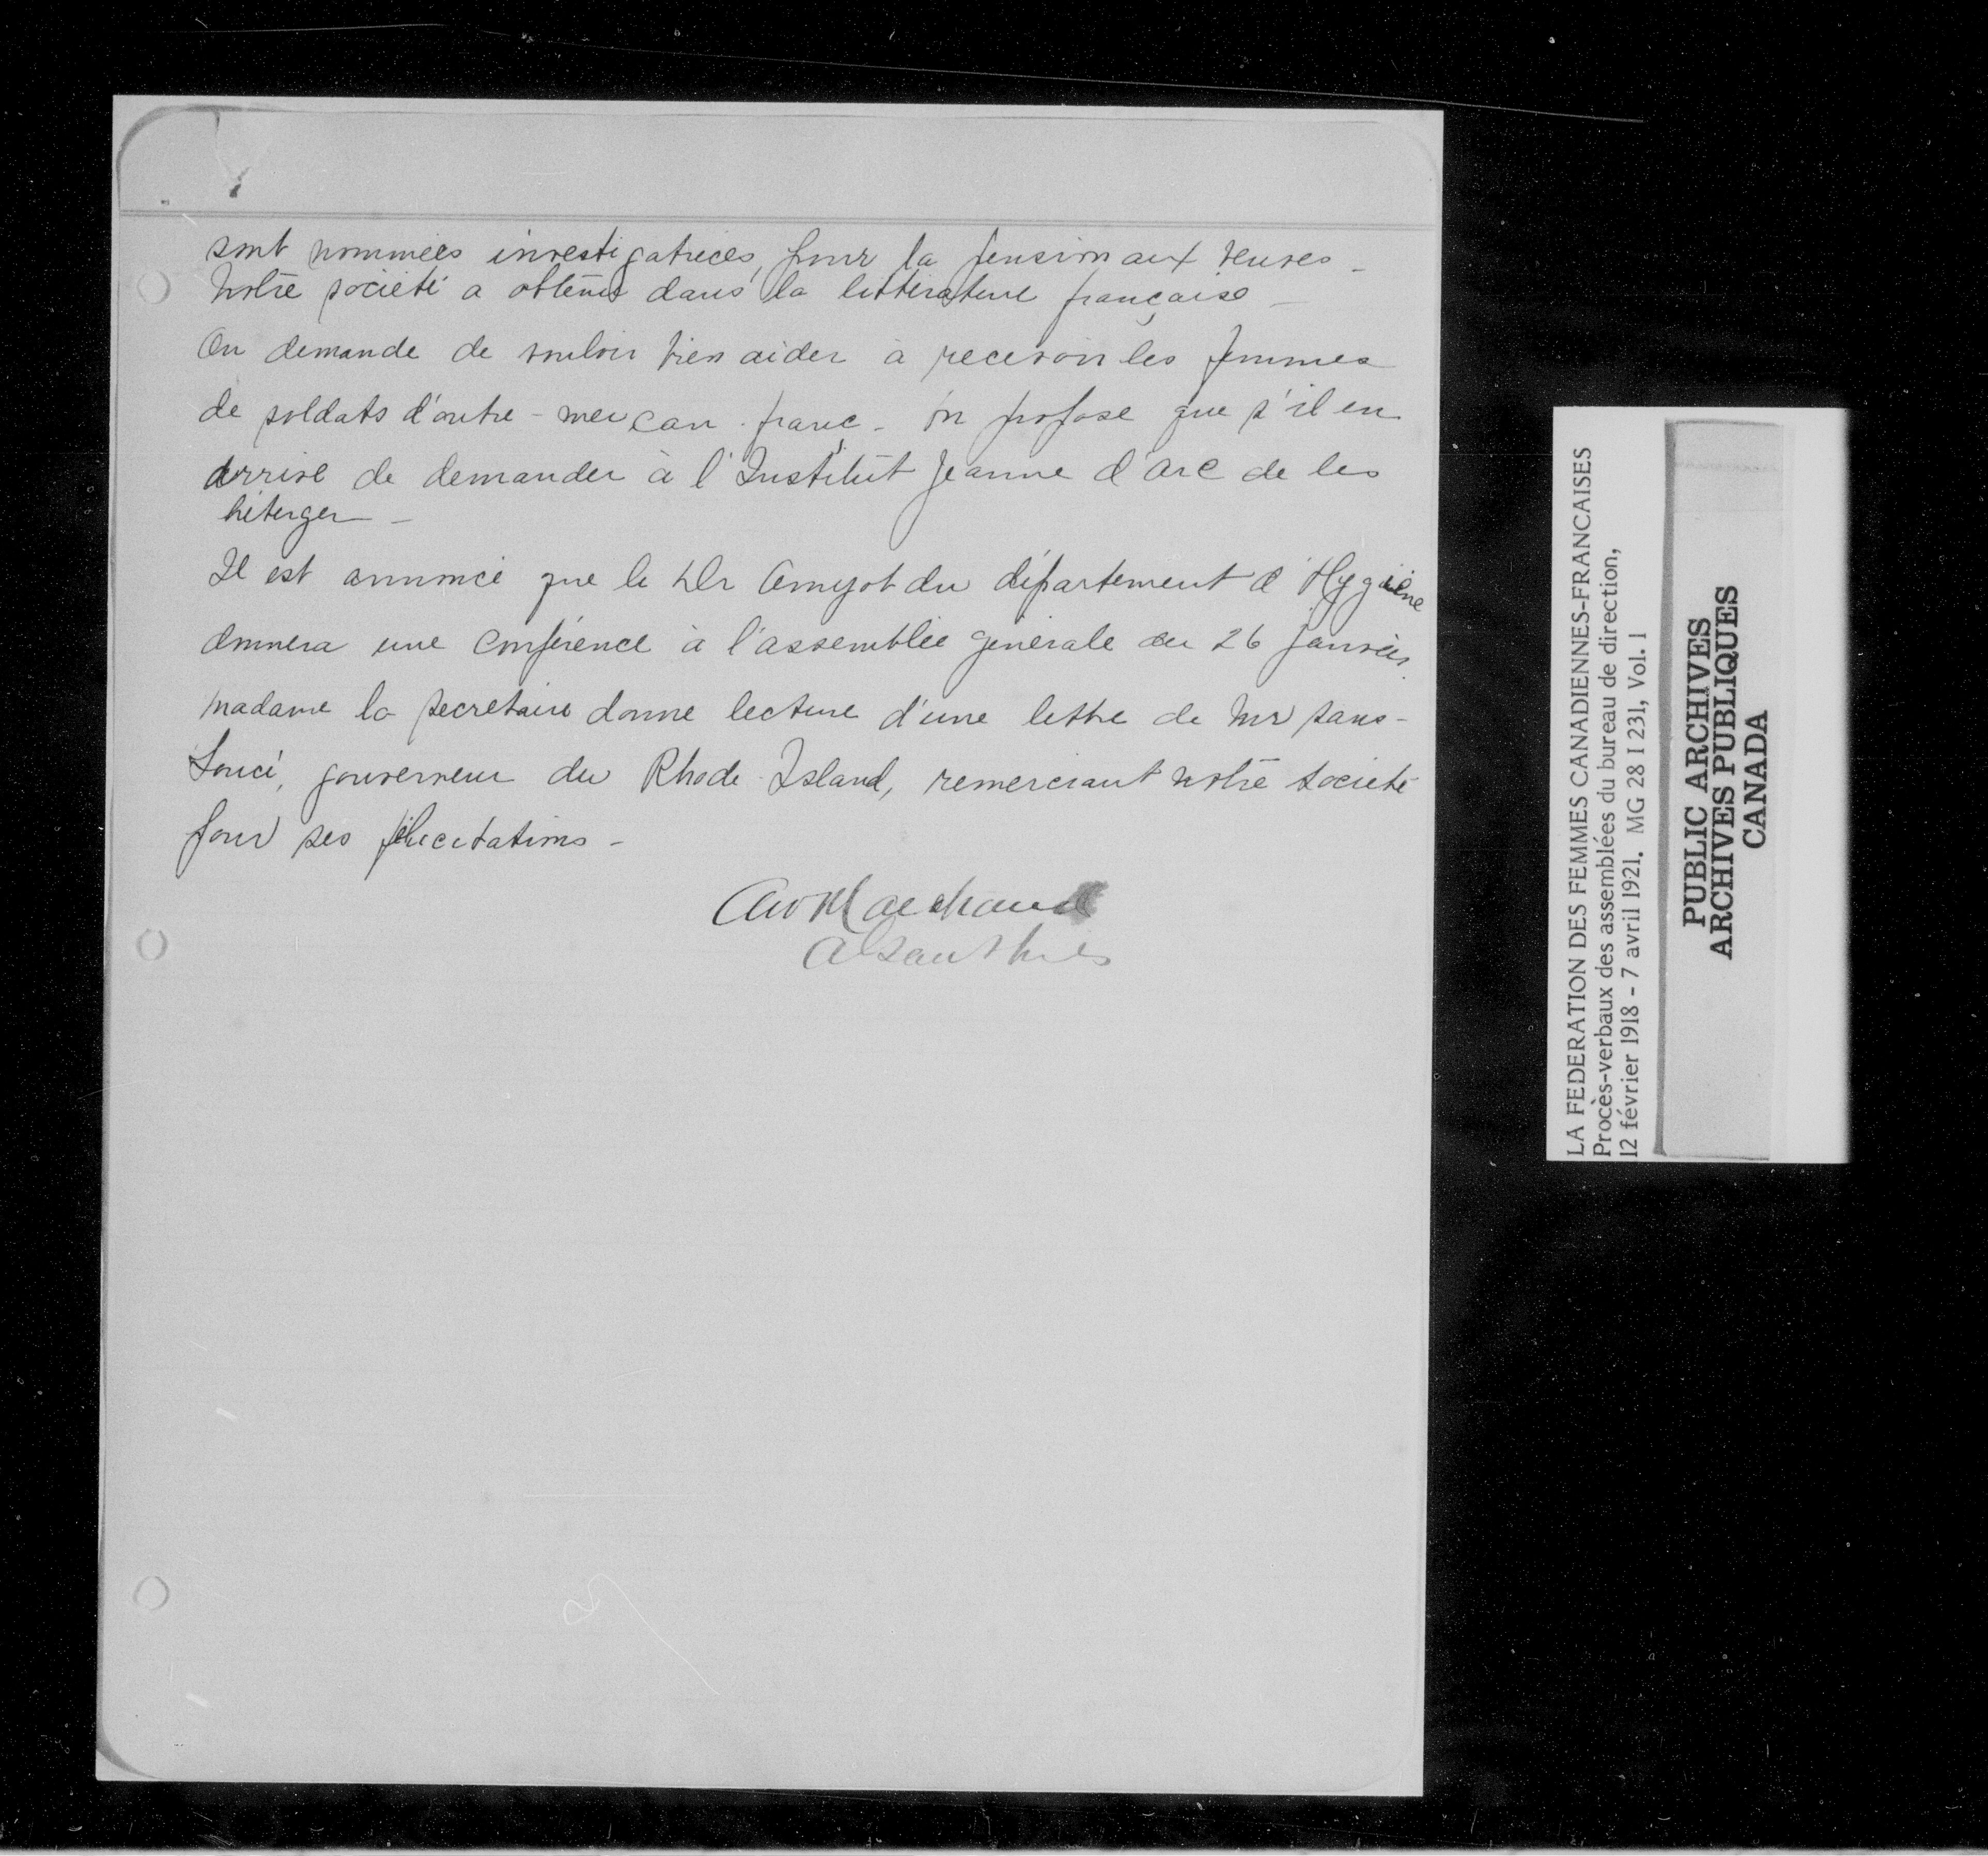 sont nommées investigatrices, pour la pension aux veuves -
Notre société a obtenu dans la littérature française -
On demande de vouloir bien aider à recevoir les femmes
de soldats d'outre-mer can. franç - on propose que s'il en
arrive de demander à l'Institut Jeanne d'Arc de les
héberger -
Il est annoncé que le Dr Amyot du département d'Hygiène
donnera une conférence à l'assemblée générale du 26 janvier.
Madame la secrétaire donne lecture d'une lettre de Mr Sans-
Souci, gouverneur du Rhode-Island, remerciant notre société
pour ses félicitations -
Marchand
LA FEDERATION DES FEMMES CANADIENNES-FRANCAISES
Procès-verbaux des assemblées du bureau de direction,
12 février 1918 - 7 avril 1921. MG 28 I 231, Vol. 1
PUBLIC ARCHIVES
ARCHIVES PUBLIQUES
CANADA